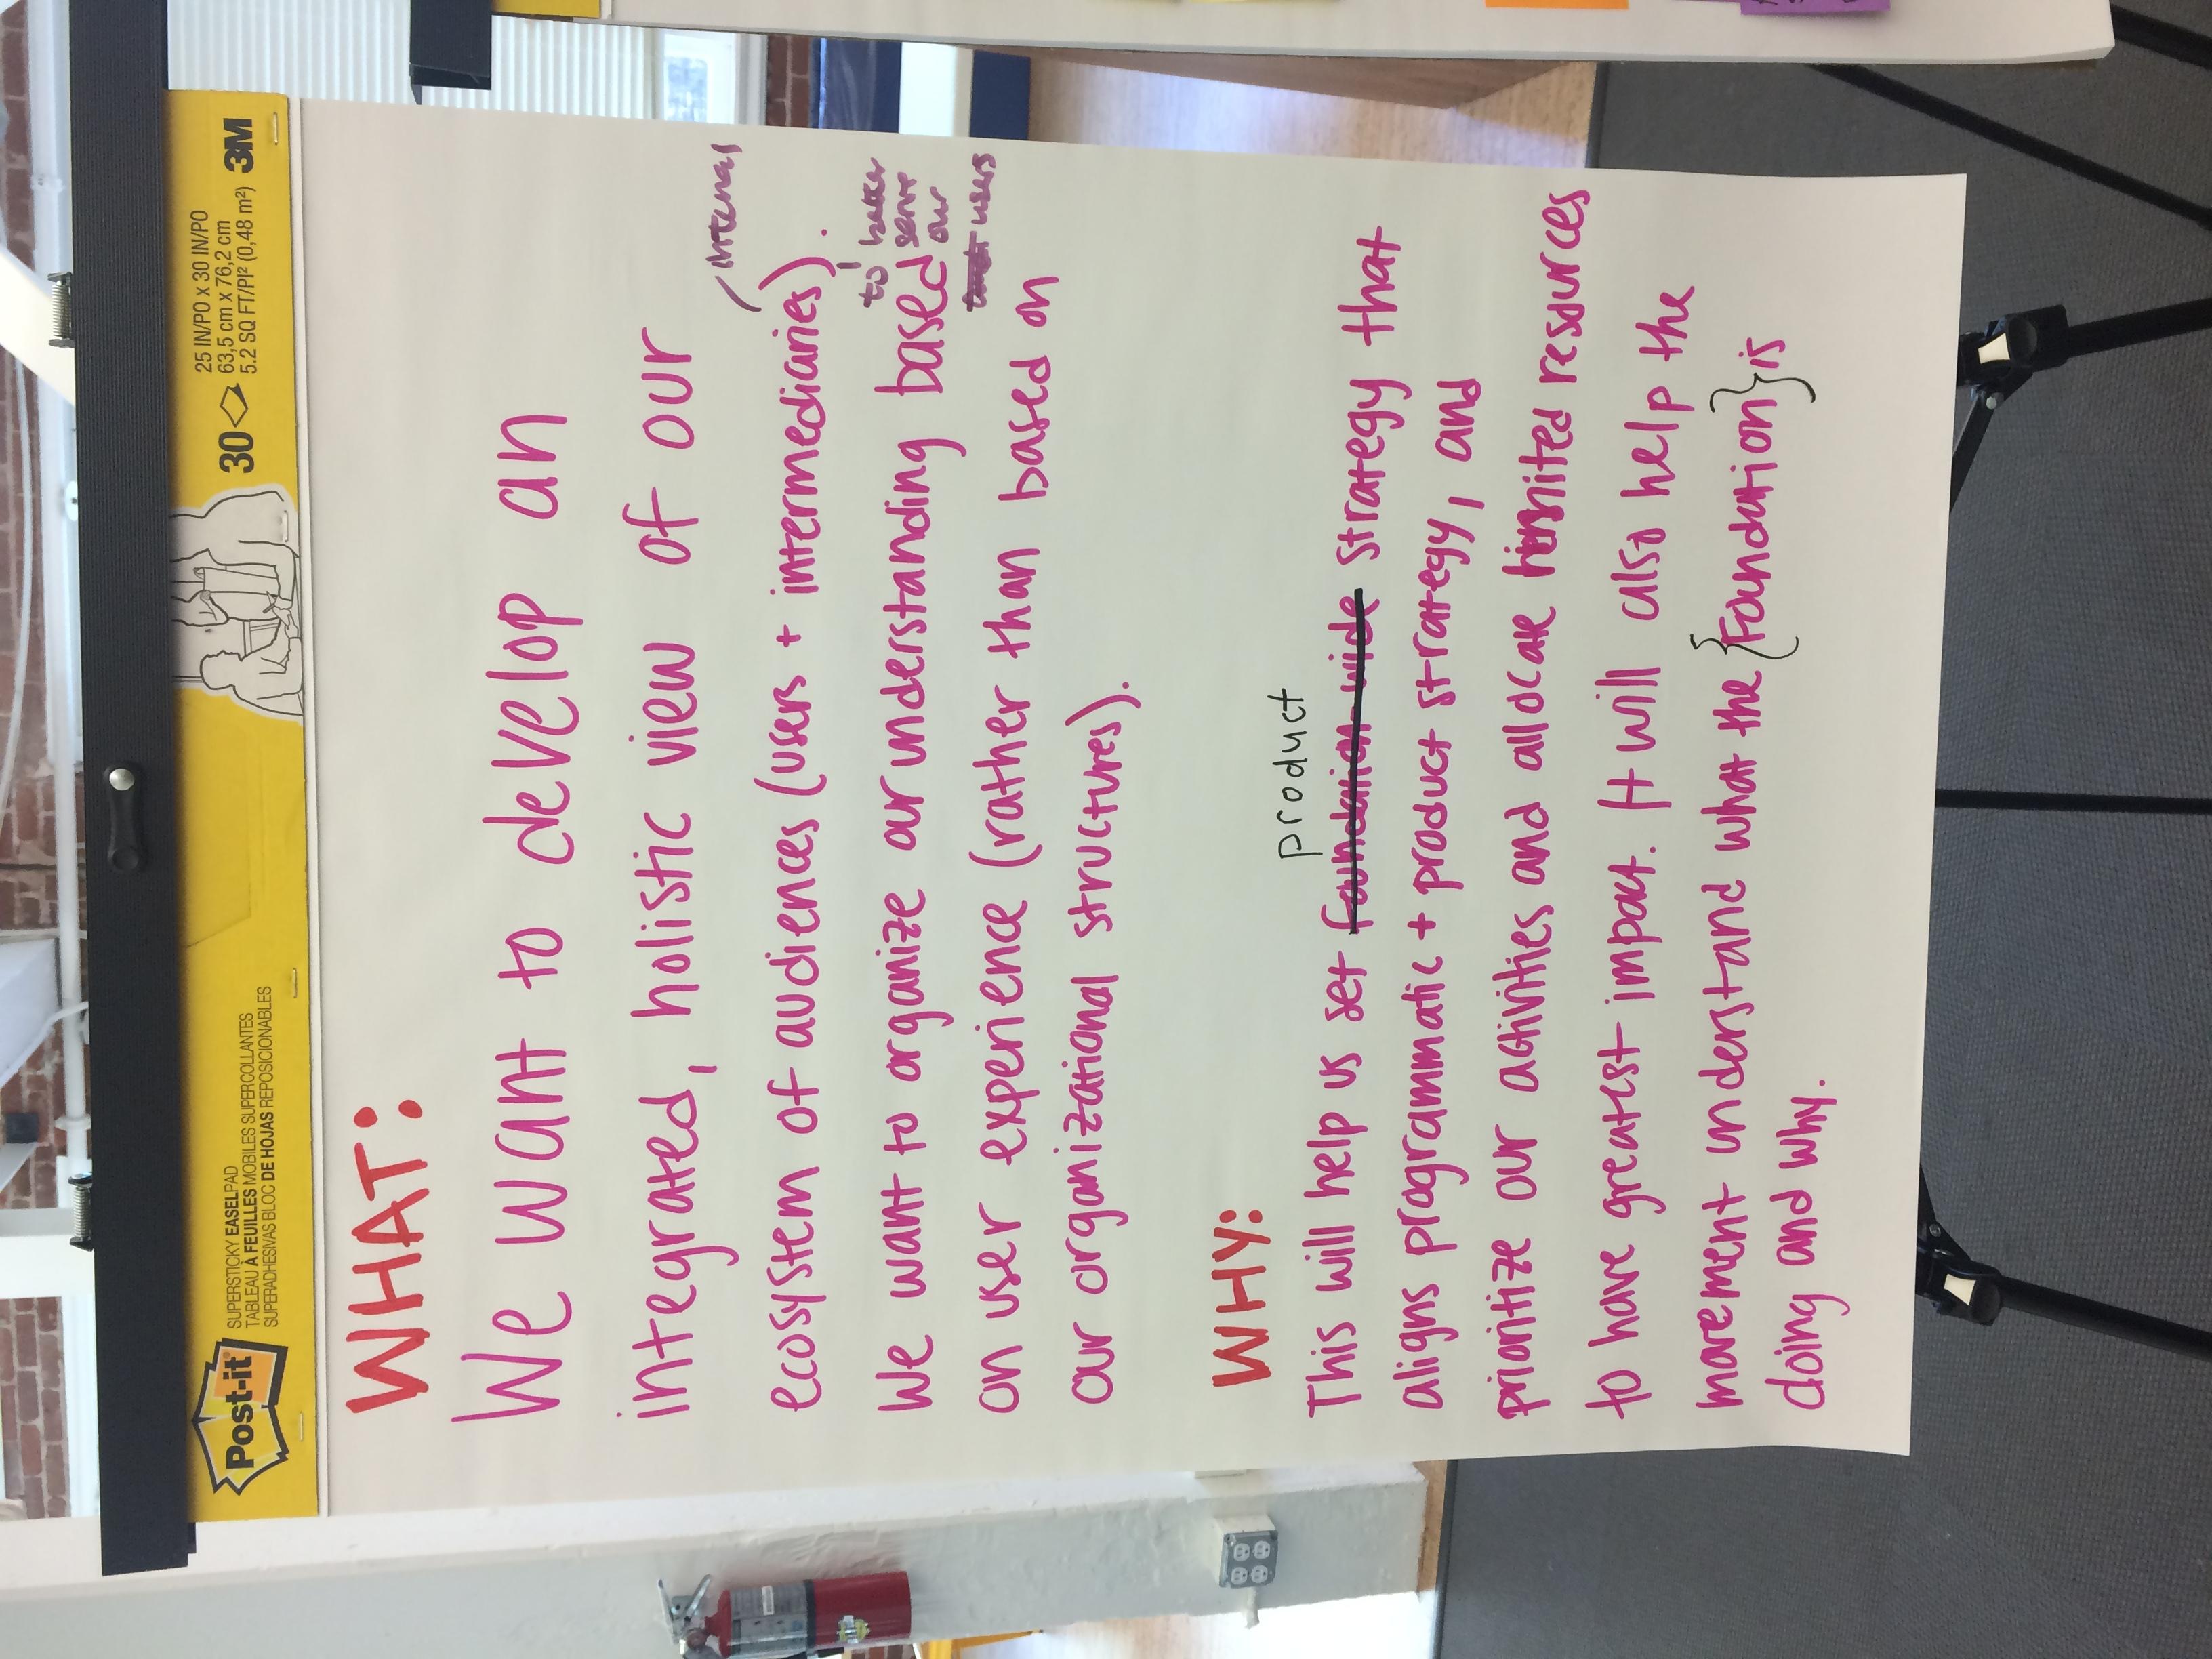 Post-it
SUPERSTICKY EASELPAD
TABLEAU À FEUILLES MOBILES SUPERCOLLANTES
SUPERADHESIVAS BLOC DE HOJAS REPOSICIONABLES
30
25 IN/PO x 30 IN/PO
63,5 cm x 76,2 cm
5.2 SQ FT/PI² (0,48 m²)
3M
WHAT:
We want to develop an
integrated, holistic view of our
internal
ecosystem of audiences (users + intermediaries).
to better
serve
our
users
We want to organize our understanding based
on user experience (rather than based on
our organizational structures).
WHY:
product
This will help us set foundation-wide strategy that
aligns programmatic + product strategy, and
prioritize our activities and allocate limited resources
to have greatest impact. It will also help the
movement understand what the {Foundation} is
doing and why.